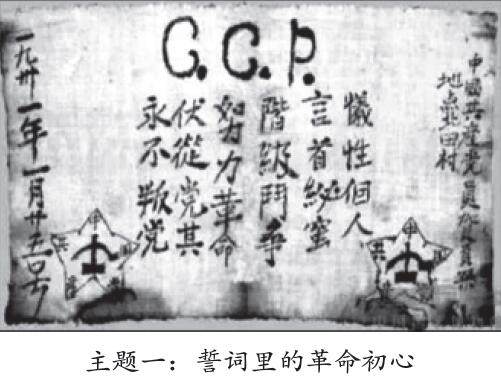 C.C.P.
中國共產党員
地點田村
犧性個人
言首秘蜜
階級鬥争
努力革命
伏從党其
永不叛党
一九卅一年一月廿五
主题一：誓词里的革命初心